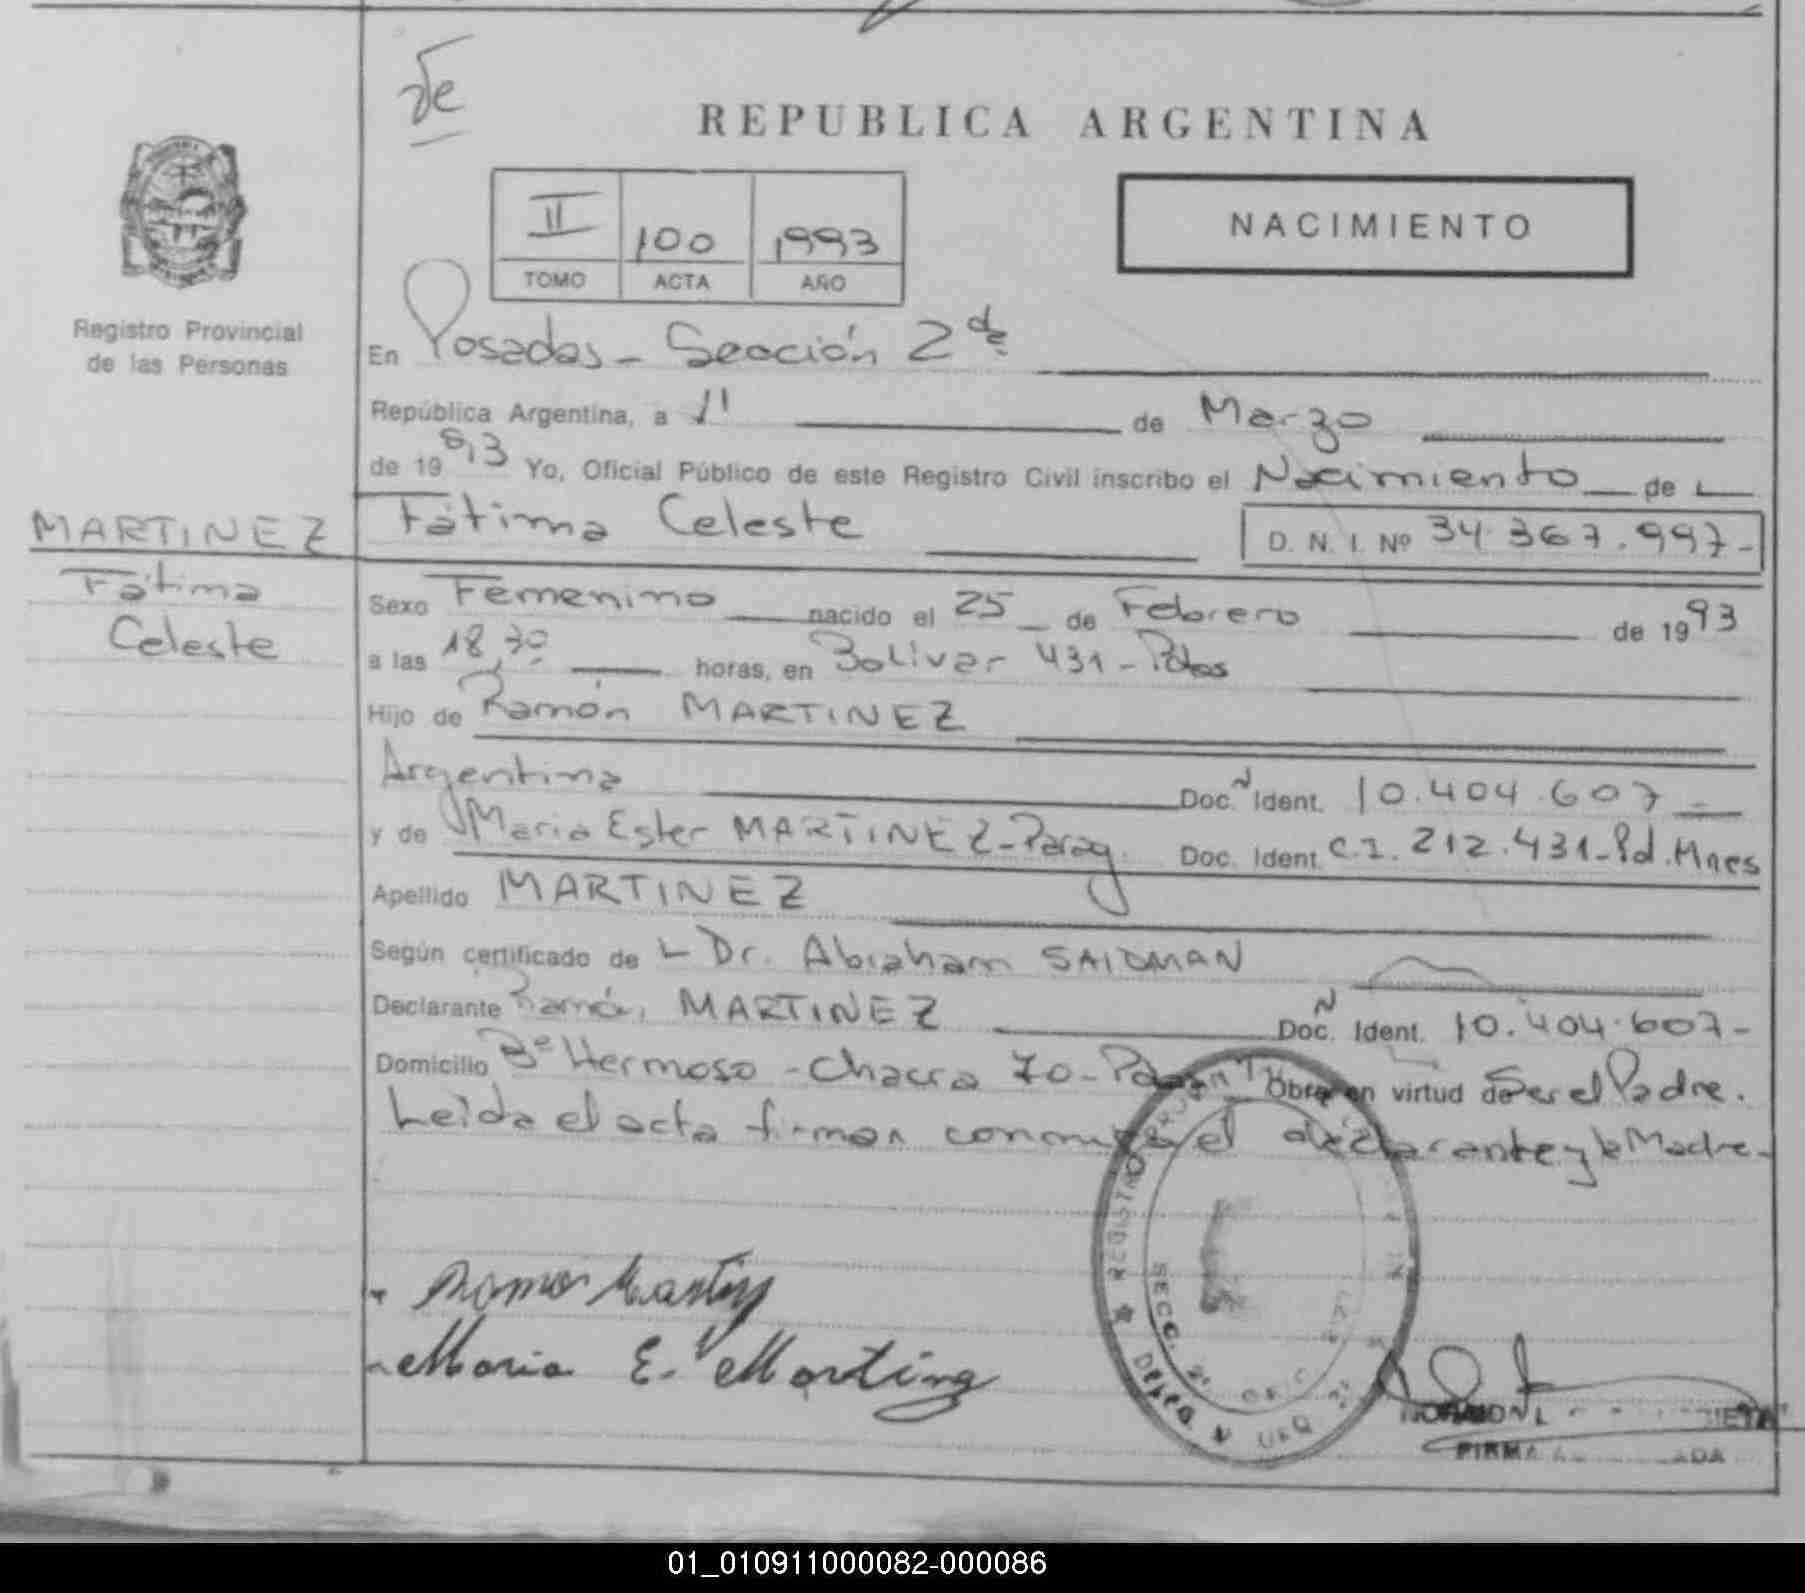 REPUBLICA ARGENTINA
II 100 1993
TOMO ACTA AÑO
NACIMIENTO
Registro Provincial
de las Personas
En Posadas - Sección 2da
República Argentina, a 11 de Marzo
de 1993 Yo, Oficial Público de este Registro Civil inscribo el Nacimiento de
MARTINEZ
Fátima
Celeste
Fátima Celeste D. N. I. Nº 34.367.997-
Sexo Femenino nacido el 25 de Febrero de 1993
a las 18,30 horas, en Bolivar 431 - Pdas
Hijo de Ramón MARTINEZ
Argentina Doc. Ident. 10.404.607
y de Maria Ester MARTINEZ - Parag. Doc. Ident. C.I. 212.431 - Pd. Mnes
Apellido MARTINEZ
Según certificado de L Dr. Abraham SAIDMAN
Declarante Ramón MARTINEZ Doc. Ident. 10.404.607-
Domicilio Bº Hermoso - Chacra 70 - Obra en virtud de Ser el Padre.
Leida el acta firman conmigo el declarante y la Madre-
Ramon Martinez
Maria E. Martinez
REGISTRO
SECC. 2ª
FIRMA
01_010911000082-000086